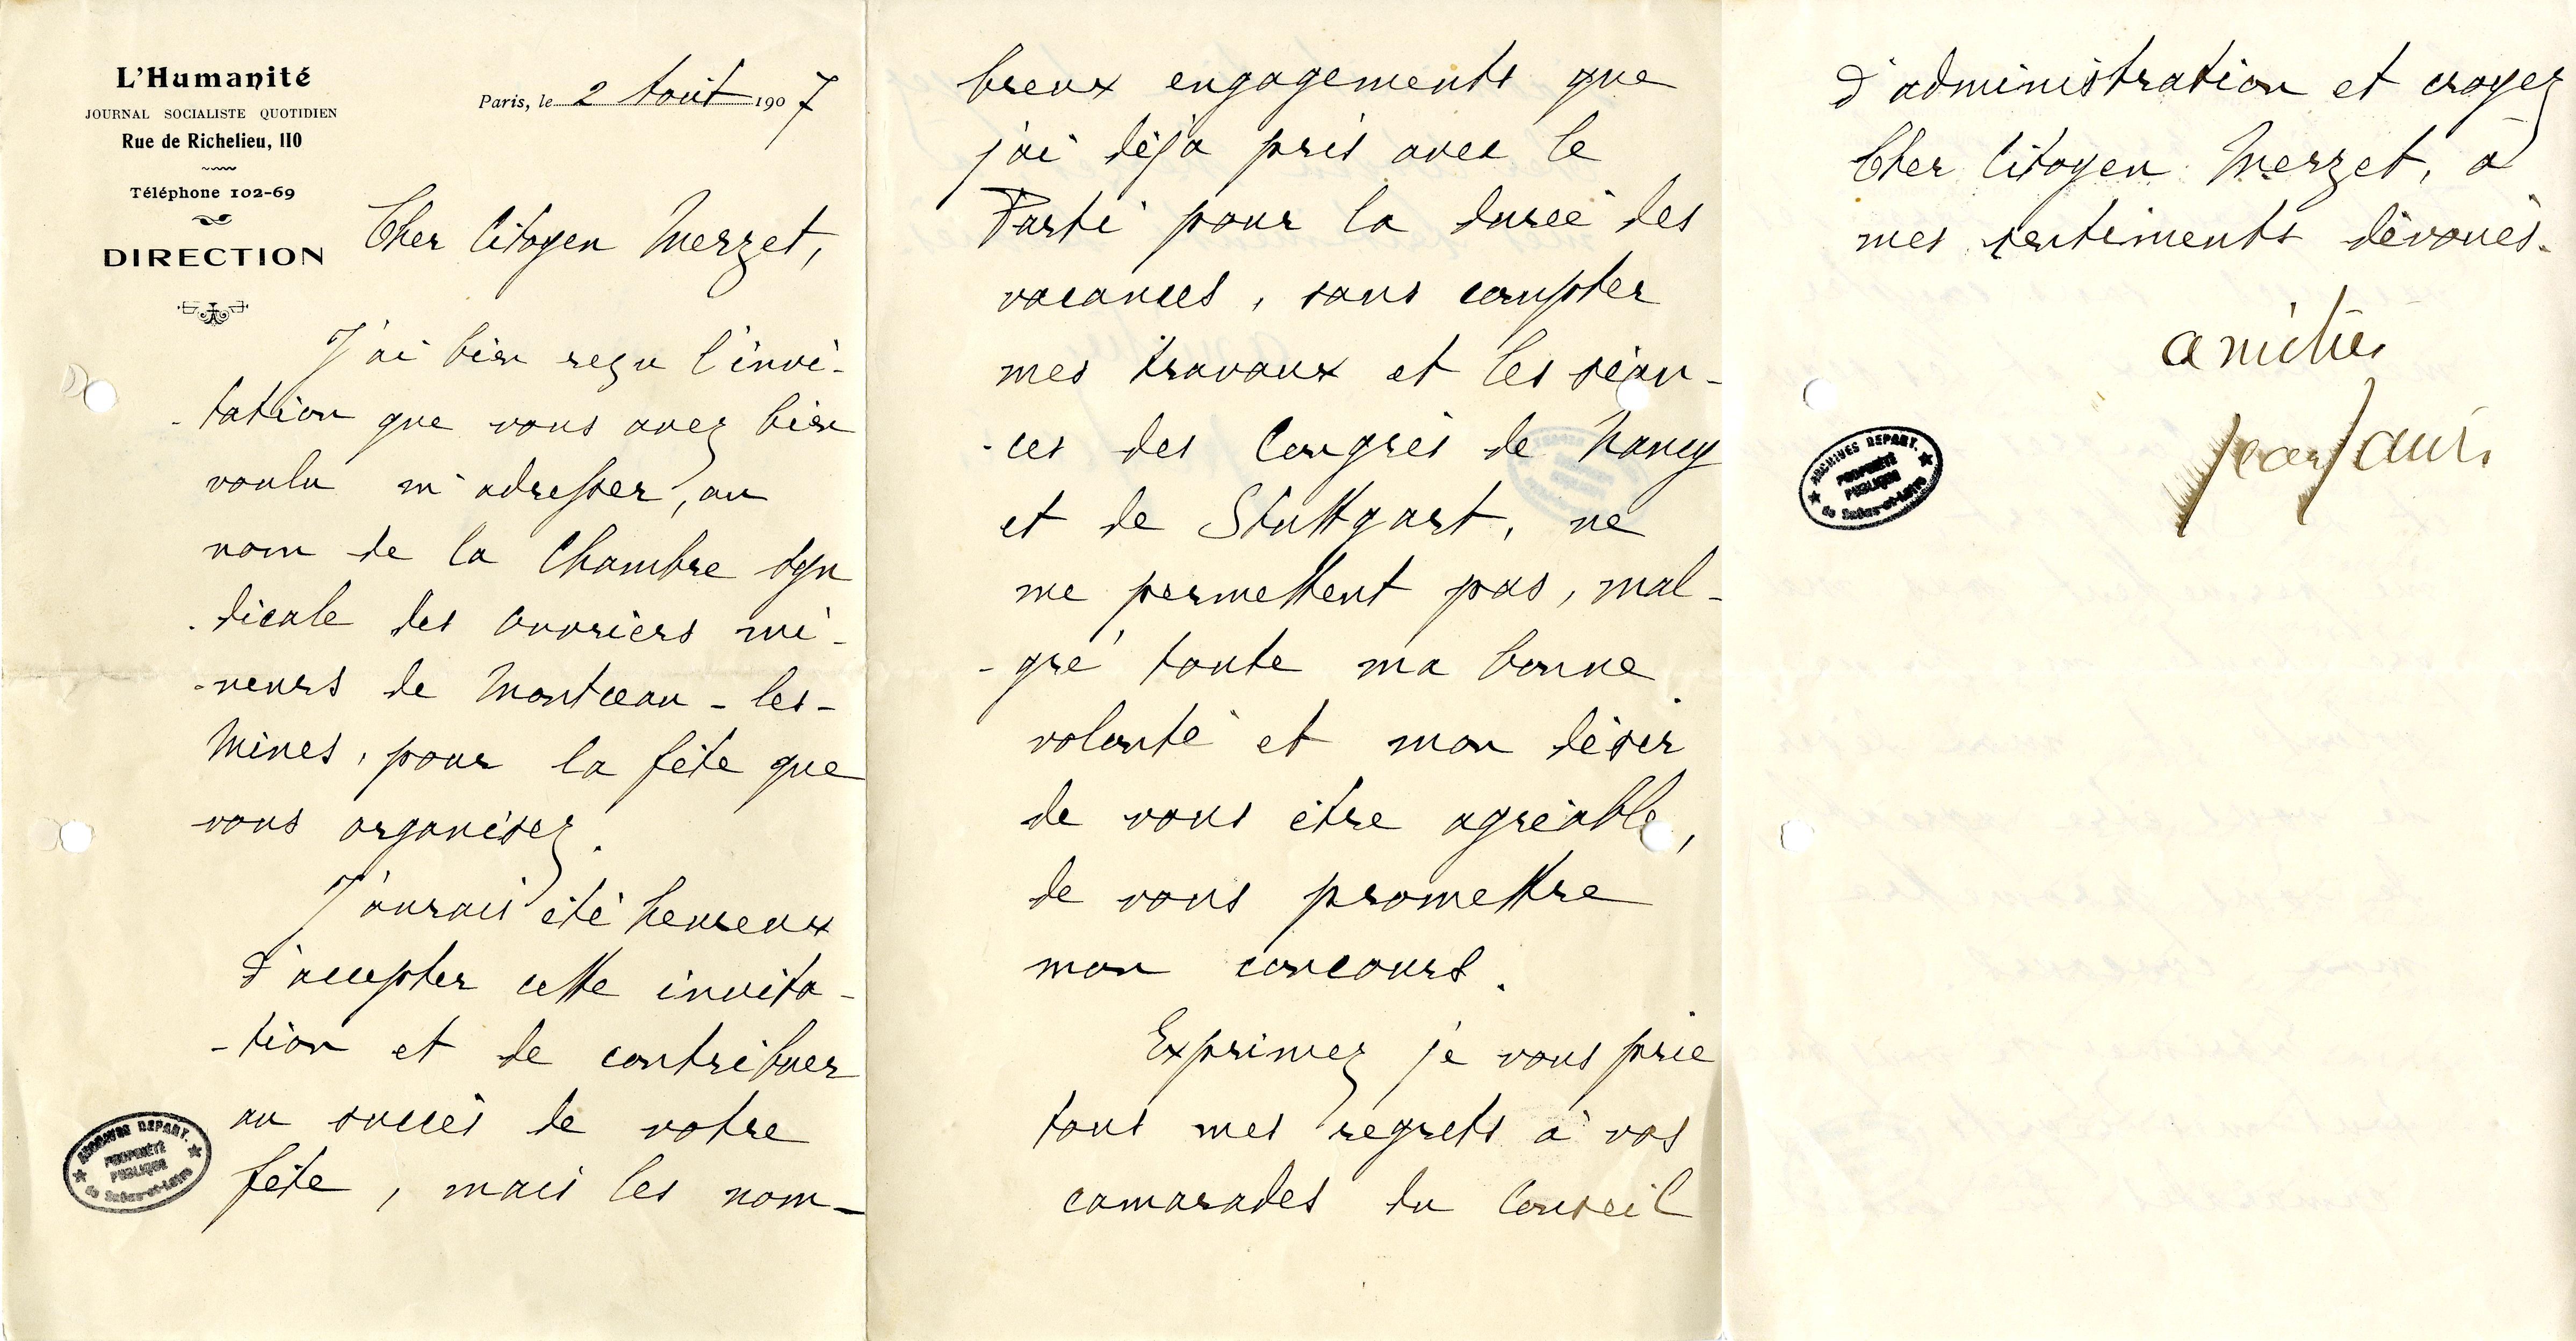 L'Humanité
JOURNAL SOCIALISTE QUOTIDIEN
Rue de Richelieu, 110
Téléphone 102-69
DIRECTION
Paris, le 2 Août 1907
Cher Citoyen Merzet,
J'ai bien reçu l'invi-
-tation que vous avez bien
voulu m'adresser, au
nom de la Chambre syn
-dicale des ouvriers mi-
-neurs de Montceau-les-
Mines, pour la fête que
vous organisez.
J'aurais été heureux
d'accepter cette invita-
-tion et de contribuer
au succès de votre
fête, mais les nom-
breux engagements que
j'ai déjà pris avec le
Parti pour la durée des
vacances, sans compter
mes travaux et les séan-
-ces des Congrès de Nancy
et de Stuttgart, ne
me permettent pas, mal-
-gré toute ma bonne
volonté et mon désir
de vous être agréable,
de vous promettre
mon concours.
Exprimez je vous prie
tous mes regrets à vos
camarades du Conseil
d'administration et croyez
Cher Citoyen Merzet, à
mes sentiments dévoués.
amitiés
Jean Jaurès
ARCHIVES DEPART.
PROPRIÉTÉ
PUBLIQUE
de Saône-et-Loire
ARCHIVES DEPART.
PROPRIÉTÉ
PUBLIQUE
de Saône-et-Loire